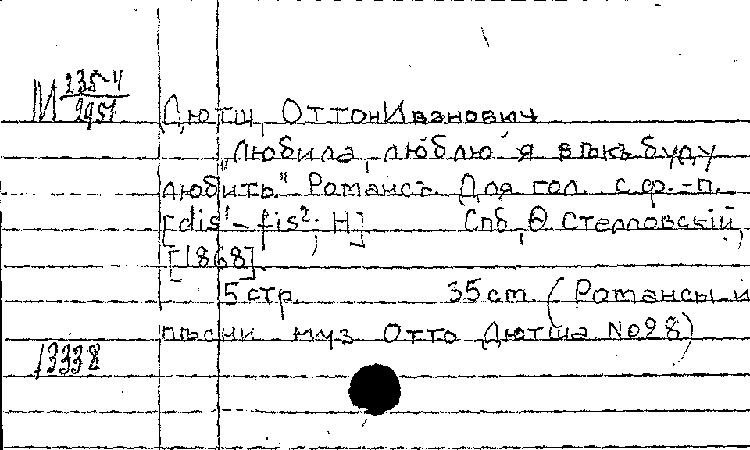 М 235-4/2951
Дютш, Оттон Иванович
"Любила, люблю я вѣкъ буду
любить." Романсъ. Для гол. с ф.-п.
[dis¹ - fis²; H] Спб, Ѳ Стелловскій,
[1868]
5 стр. 35 cm. (Романсы и
пѣсни муз Отто Дютша № 28)
13338